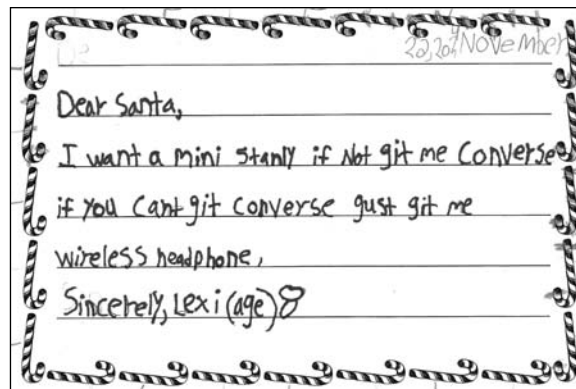 20, 2024 November
Dear Santa,
I want a mini stanly if Not git me Converse
if You Cant git Converse gust git me
wireless headphone,
Sincerely, Lexi (age) 8